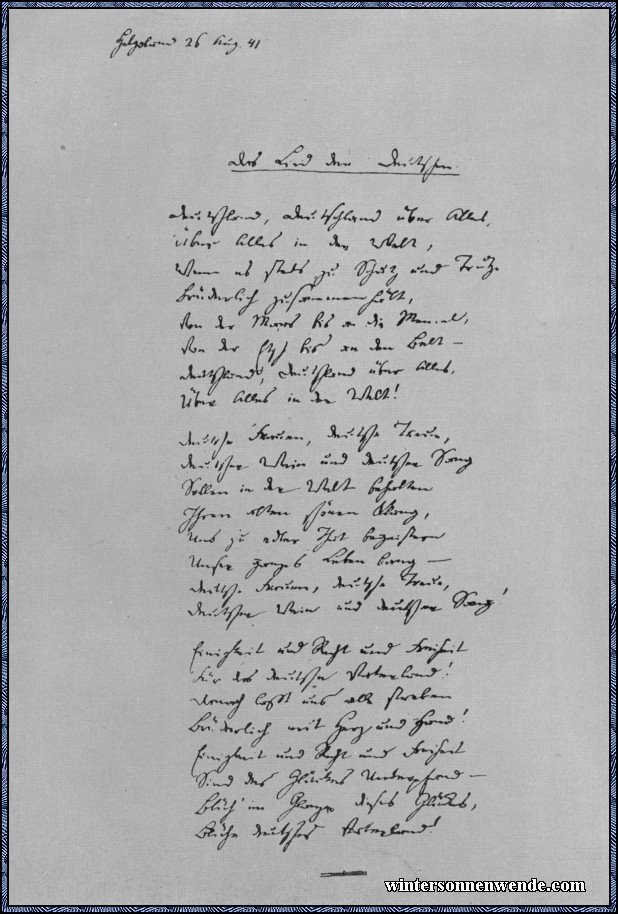 Helgoland 26 Aug. 41
Das Lied der Deutschen.
Deutschland, Deutschland über Alles,
Über Alles in der Welt,
Wenn es stets zu Schutz und Trutze
Brüderlich zusammenhält,
Von der Maas bis an die Memel,
Von der Etsch bis an den Belt –
Deutschland, Deutschland über Alles,
Über Alles in der Welt!
Deutsche Frauen, deutsche Treue,
Deutscher Wein und deutscher Sang
Sollen in der Welt behalten
Ihren alten schönen Klang,
Uns zu edler That begeistern
Unser ganzes Leben lang –
Deutsche Frauen, deutsche Treue,
Deutscher Wein und deutscher Sang!
Einigkeit und Recht und Freiheit
Für das deutsche Vaterland!
Danach lasst uns alle streben
Brüderlich mit Herz und Hand!
Einigkeit und Recht und Freiheit
Sind des Glückes Unterpfand –
Blüh' im Glanze dieses Glückes,
Blühe deutsches Vaterland!
wintersonnenwende.com